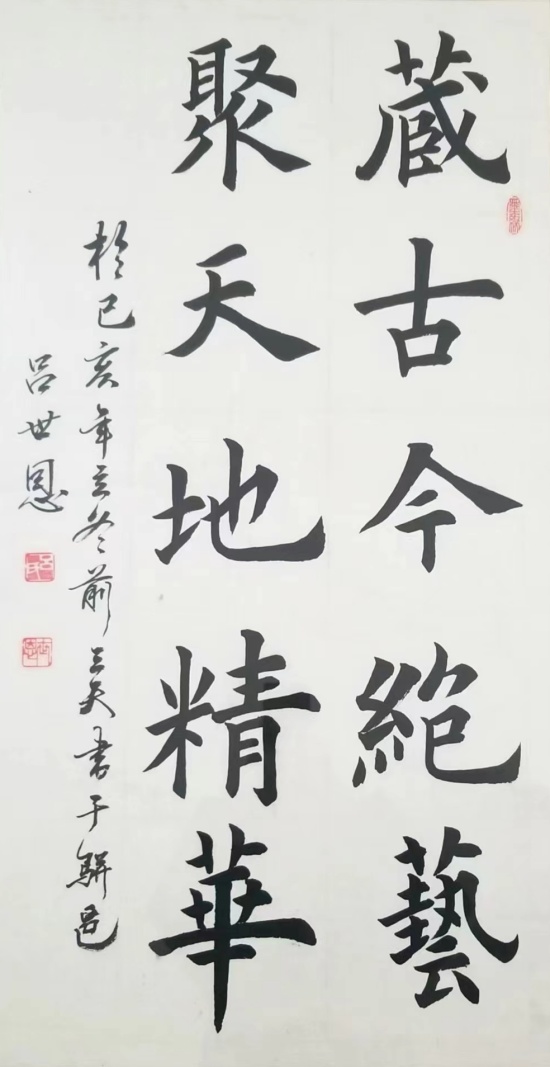 藏古今絕藝
聚天地精華
於己亥年立冬前三天書于駢邑
吕世恩